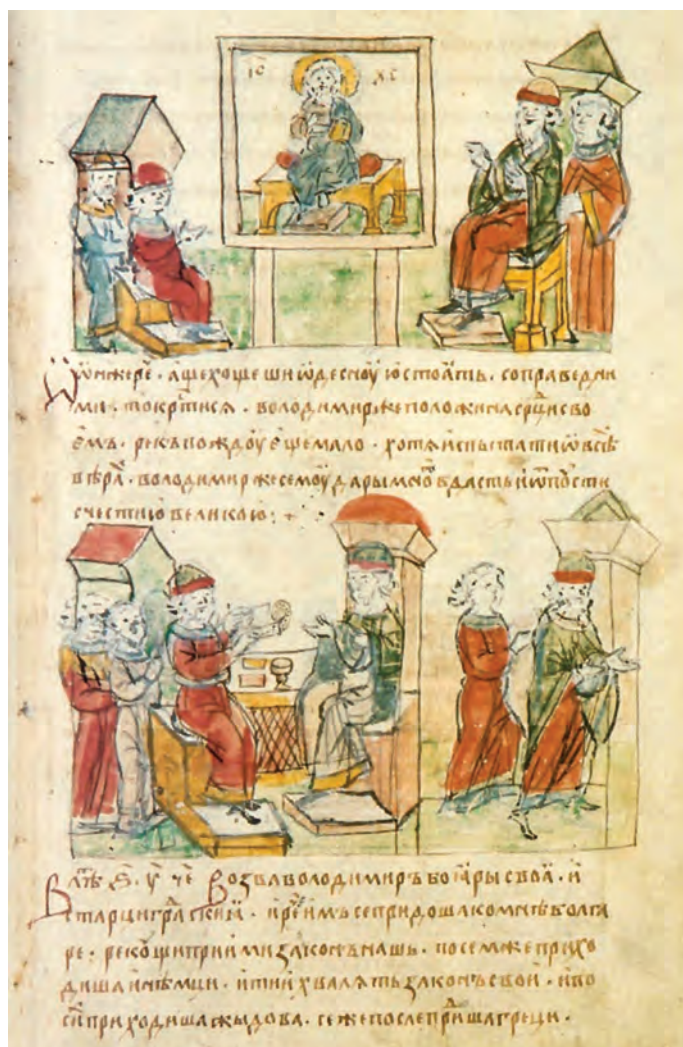 І҃С Х҃С
Ѡ҃нжере҃ · ащехощешиѡдесноую стоꙗть · соправедны
ми · токр҃тися · володимиржеположинаср҃цисво
емъ · рекъпождоуещемало · хотяиспытатиѡвсѣ
вѣра҃ · володимиржесемоударымно҃вдастьиѿпоусти
счестиювеликою: +
Влѣ҃ ѕ҃ · у҃ ч҃е Возваволодимиръбоꙗрысвоꙗ · и
старциград҃скиꙗ · иреи҃мъсепридошакомнѣболга
ре · рекоущиприимизаконънашь · посемжеприхо
дишаинѣмци · итиихвалятьзаконъсвои · ипо
си҃приходишажыдова · сежепослепри҃шагреци ·